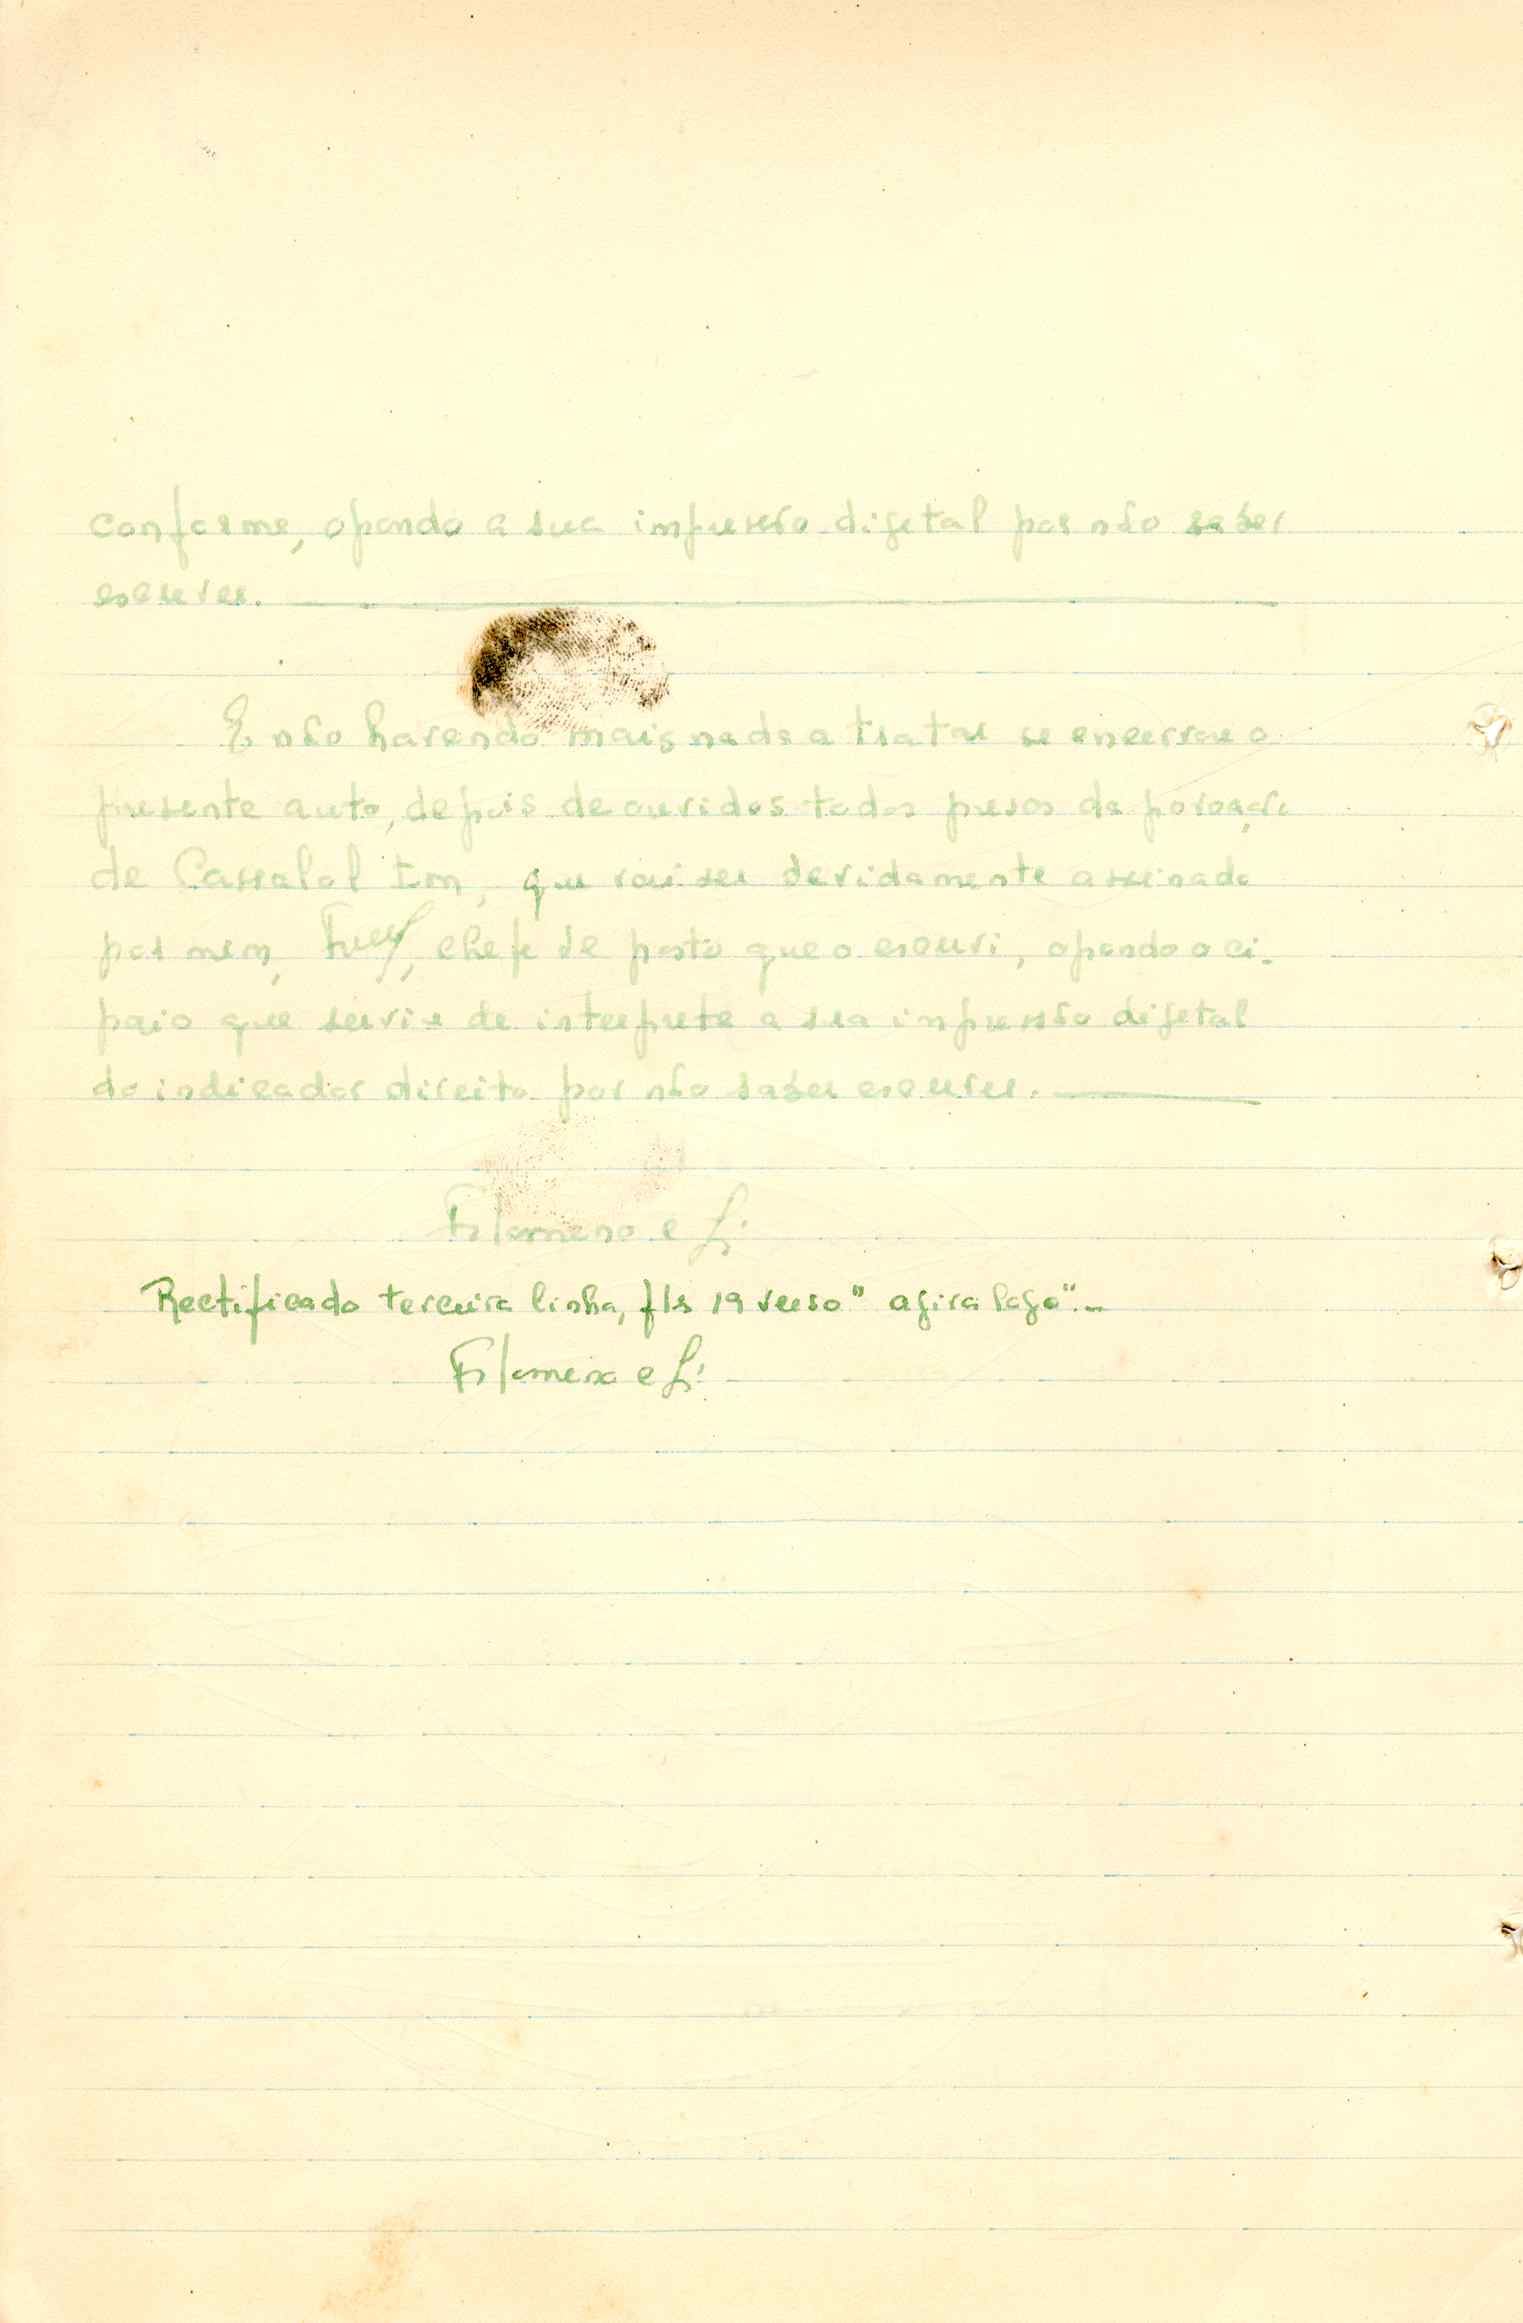 conforme, opondo a sua impressão digital por não saber
escrever.
E não havendo mais nada a tratar se encerrou o
presente auto, depois de ouvidos todos presos da povoação
de Cassalol Em, que vai ser devidamente assinado
por mem, chefe de posto que o escrevi, opondo o ci-
paio que serviu de interprete a sua impressão digital
do indicador direito por não saber escrever.
Filomeno e Sá
Rectificado terceira linha, fls 19 verso "agiralago".-
Filomeno e Sá